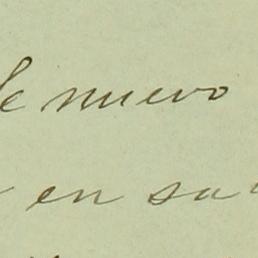 de nuevo
en sa